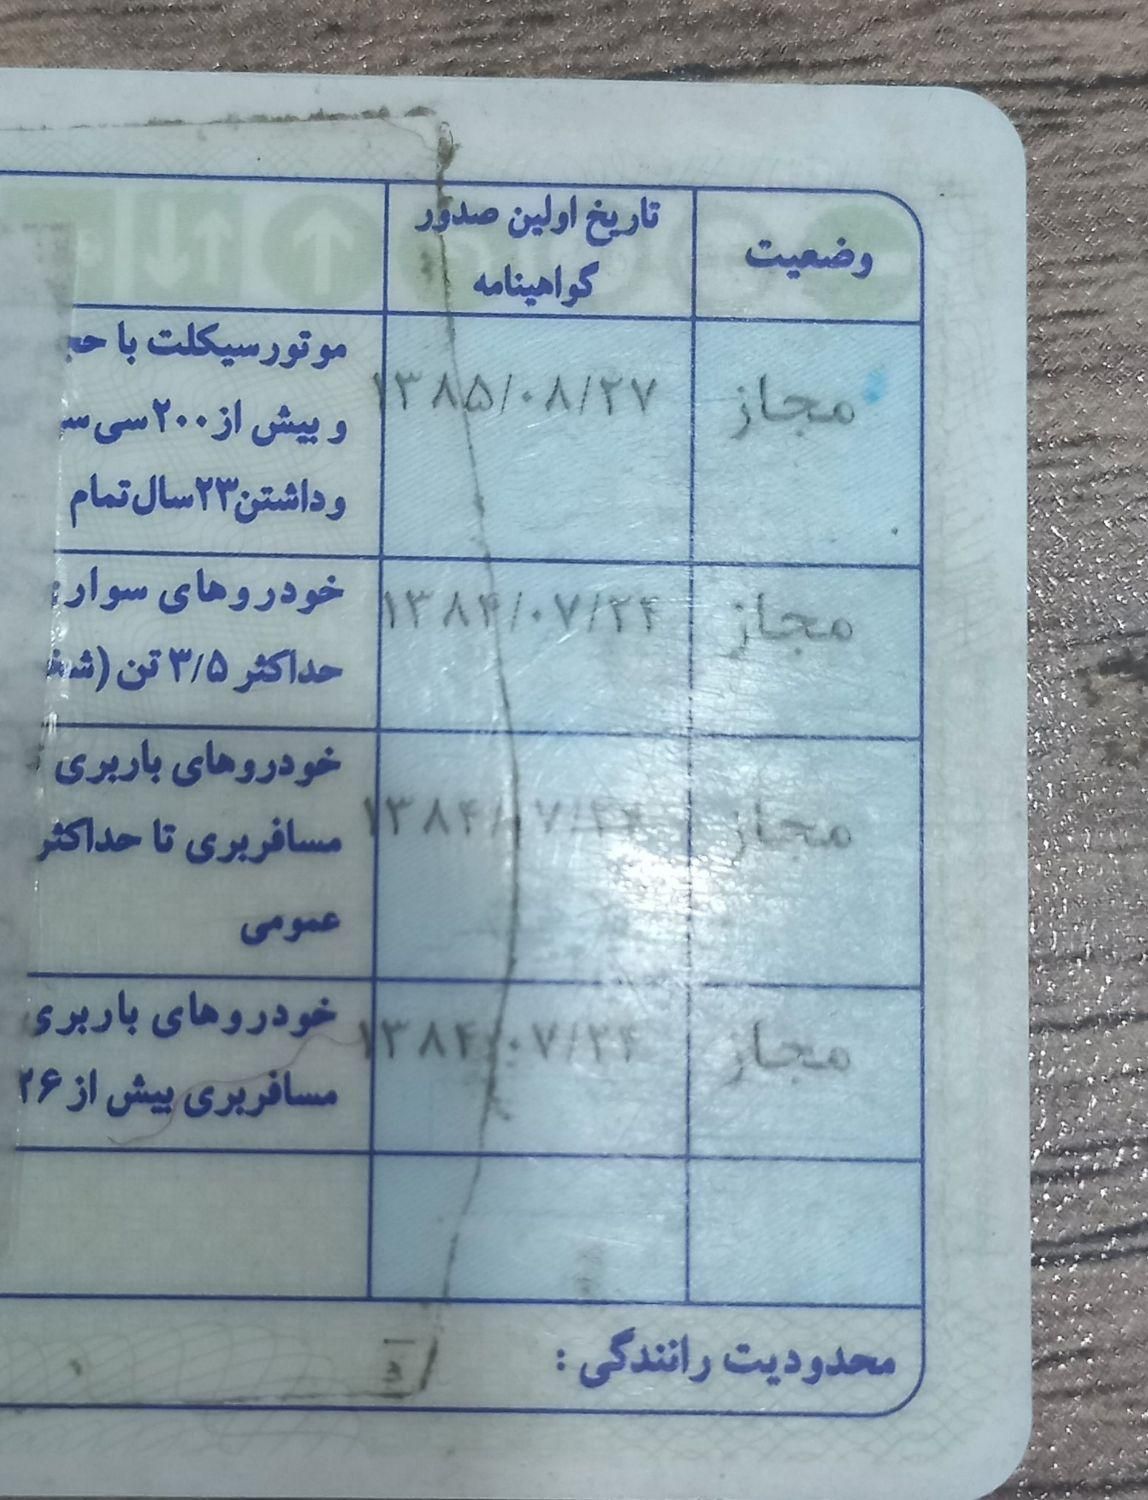 وضعیت
تاریخ اولین صدور
گواهینامه
مجاز
۱۳۸۵/۰۸/۲۷
موتورسیکلت با
و بیش از ۲۰۰ سی
وداشتن ۲۳ سال تمام
مجاز
۱۳۸۴/۰۷/۲۴
خودروهای
حداکثر ۳/۵ تن
مجاز
۱۳۸۴/۰۷/۲۴
خودروهای باربری
مسافربری تا حداکثر
عمومی
مجاز
۱۳۸۴/۰۷/۲۴
خودروهای باربری
مسافربری بیش از
محدودیت رانندگی :